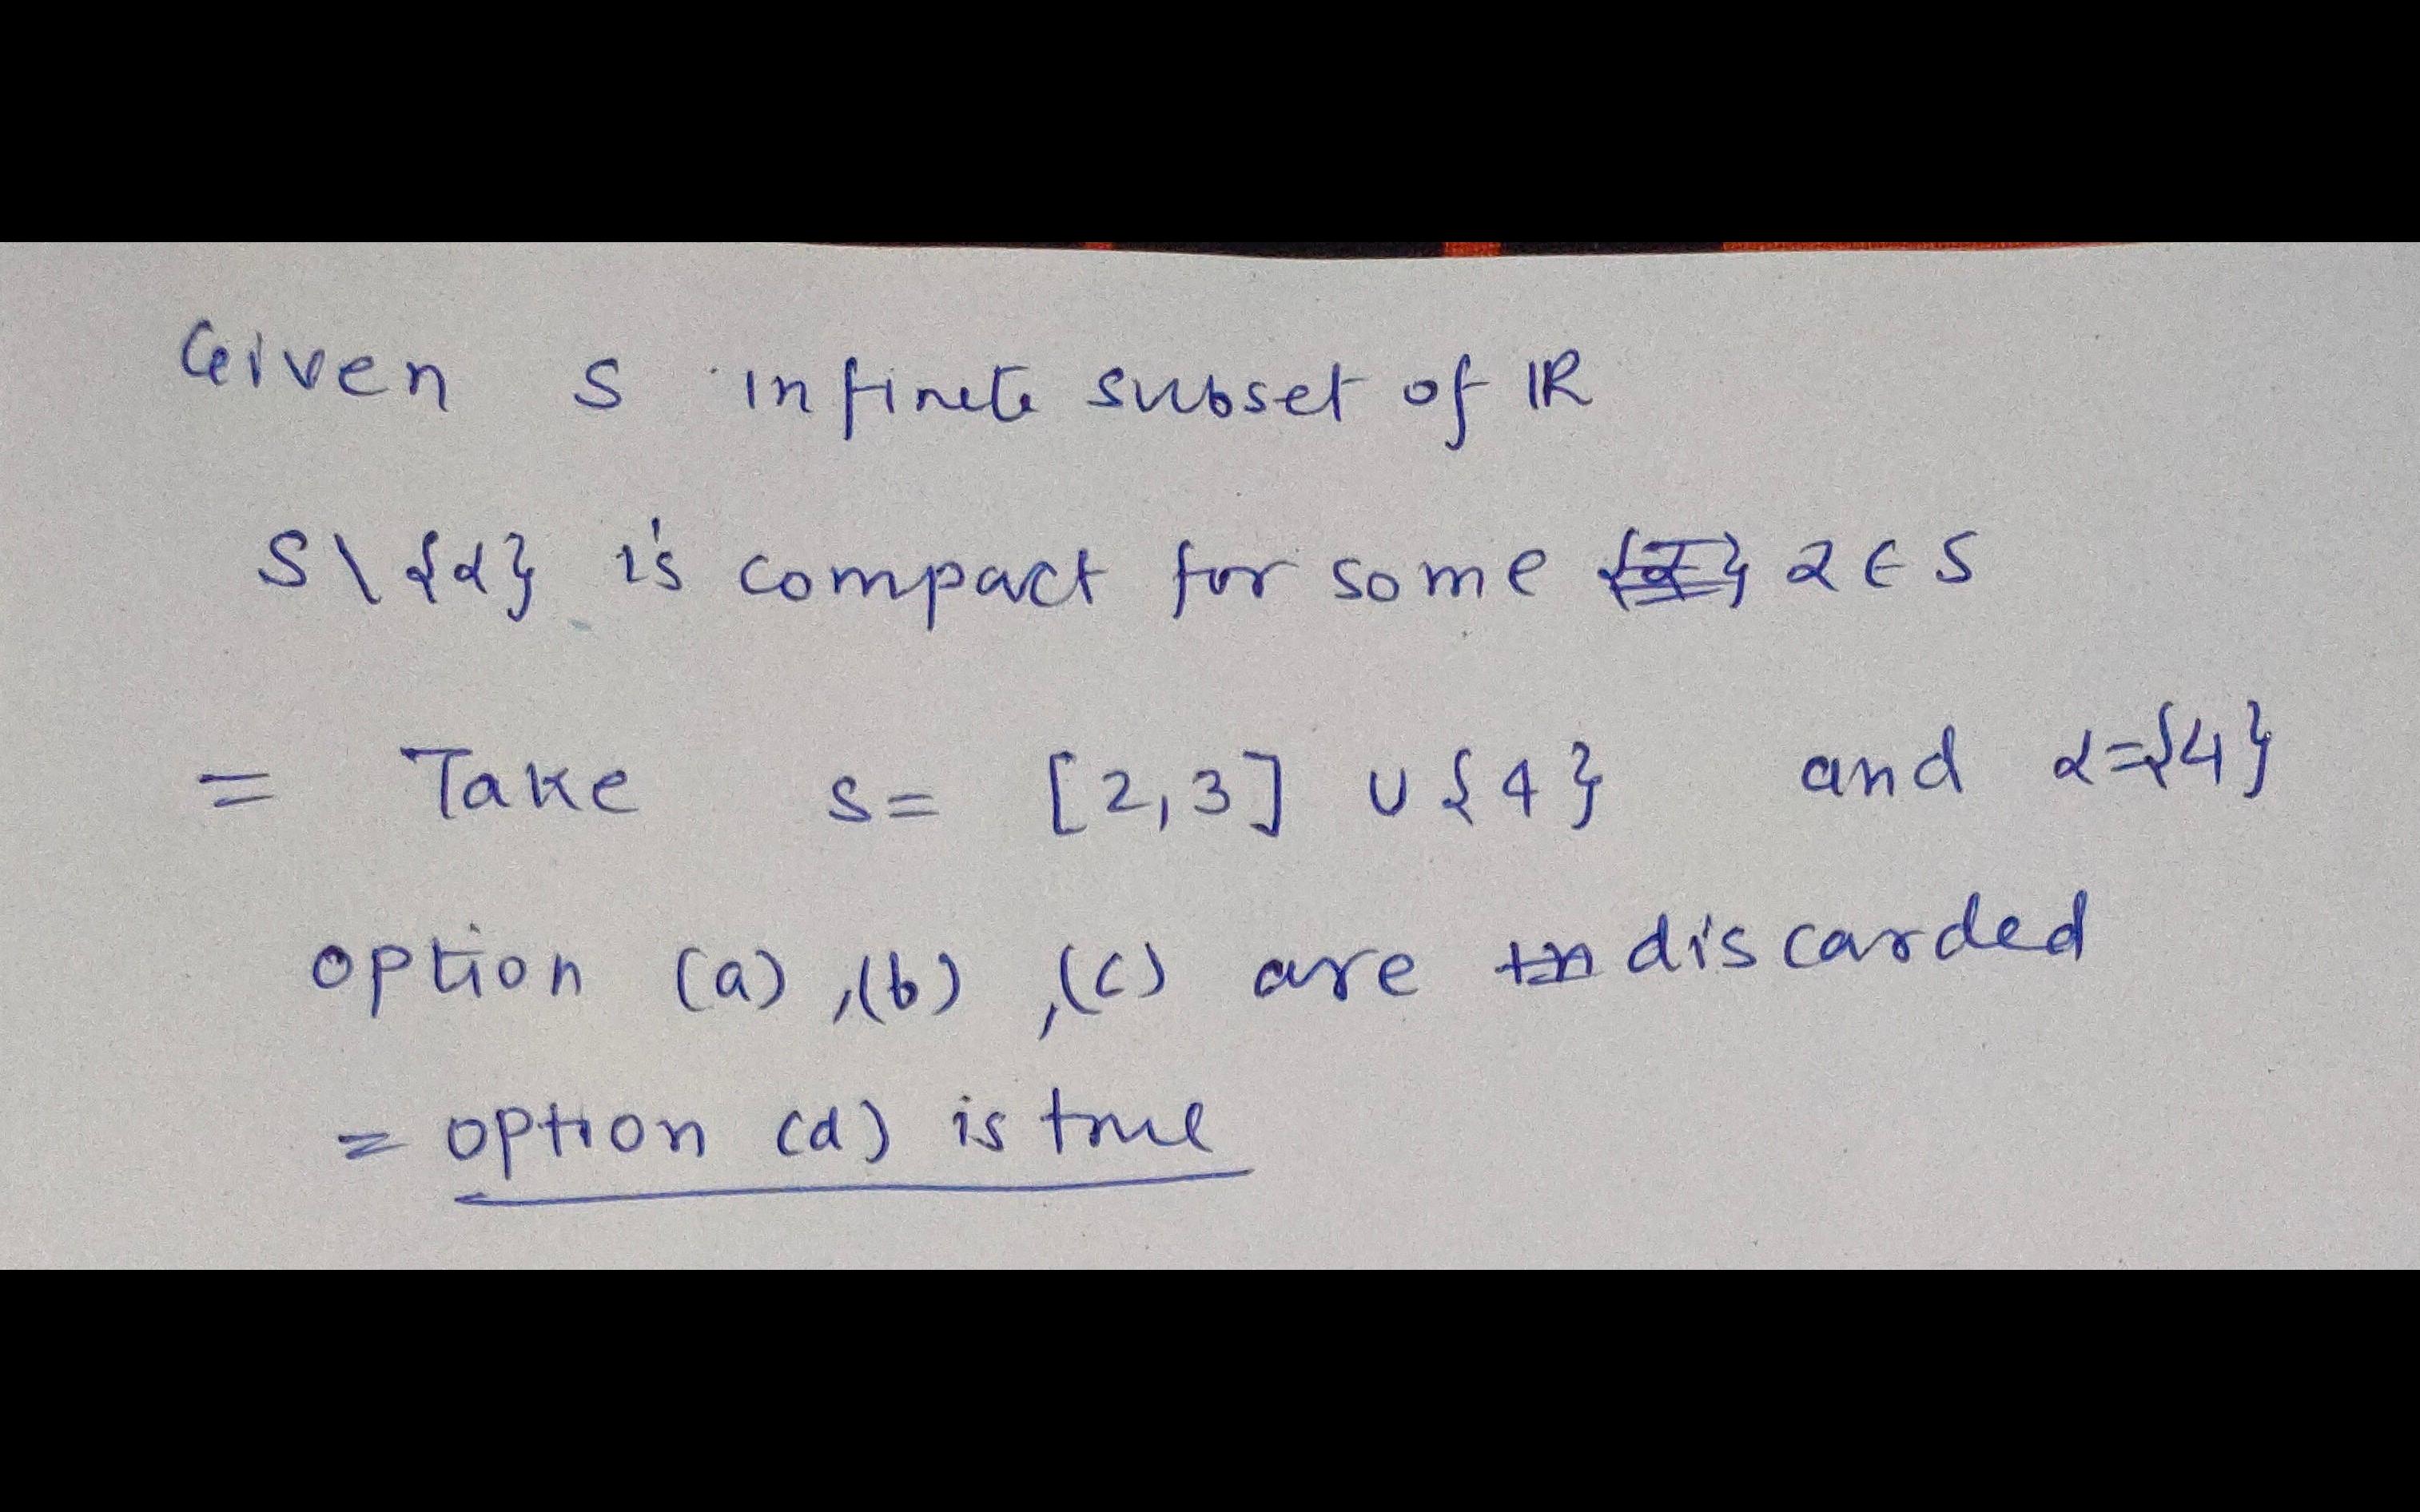 Given S infinite subset of IR
S \ {α} is compact for some α ∈ S
= Take S = [2,3] ∪ {4} and α={4}
option (a), (b), (c) are discarded
= option (d) is true